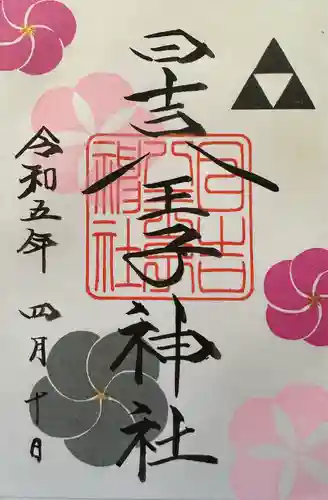 日吉八王子神社
令和五年 四月十日
日吉
八王子
神社